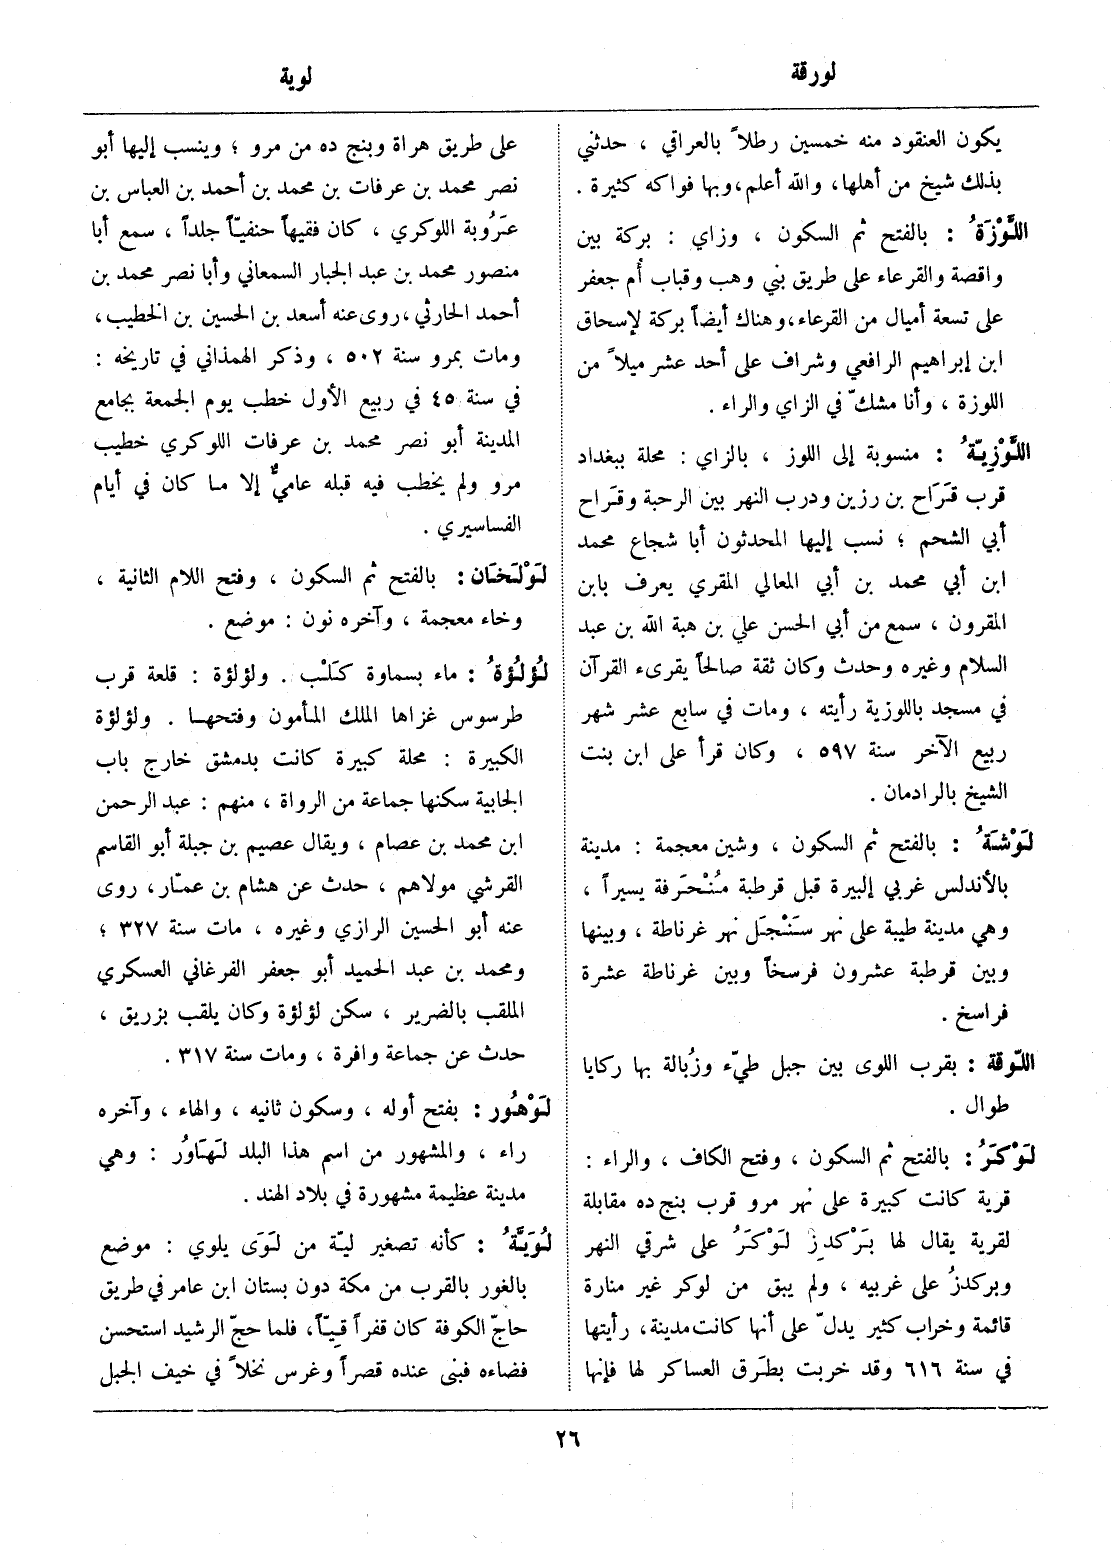 لورقة
لوية
يكون العنقود منه خمسين رطلاً بالعراقي ، حدثني
بذلك شيخ من أهلها، والله أعلم،وبها فواكه كثيرة .
اللَّوْزَةُ : بالفتح ثم السكون ، وزاي : بركة بين
واقصة والقرعاء على طريق بني وهب وقباب أُم جعفر
على تسعة أميال من القرعاء،وهناك أيضاً بركة لإسحاق
ابن إبراهيم الرافعي وشراف على أحد عشر ميلاً من
اللوزة ، وأنا مشكّ في الزاي والراء .
اللَّوْزِيّةُ : منسوبة إلى اللوز ، بالزاي : محلة ببغداد
قرب قَرَاح بن رزين ودرب النهر بين الرحبة وقَراح
أبي الشحم ؛ نسب إليها المحدثون أبا شجاع محمد
ابن أبي محمد بن أبي المعالي المقري يعرف بابن
المقرون ، سمع من أبي الحسن علي بن هبة الله بن عبد
السلام وغيره وحدث وكان ثقة صالحاً يقرىء القرآن
في مسجد باللوزية رأيته ، ومات في سابع عشر شهر
ربيع الآخر سنة ٥٩٧ ، وكان قرأ على ابن بنت
الشيخ بالرادمان .
لَوْشَةُ : بالفتح ثم السكون ، وشين معجمة : مدينة
بالأندلس غربي إلبيرة قبل قرطبة مُنْحَرفة يسيراً ،
وهي مدينة طيبة على نهر سَنْجَل نهر غرناطة ، وبينها
وبين قرطبة عشرون فرسخاً وبين غرناطة عشرة
فراسخ .
اللّوقة : بقرب اللوى بين جبل طيّء وزُبالة بها ركايا
طوال .
لَوْكَرُ : بالفتح ثم السكون ، وفتح الكاف ، والراء :
قرية كانت كبيرة على نهر مرو قرب بنج ده مقابلة
لقرية يقال لها بَرْكدِز لَوْكَرُ على شرقي النهر
وبركدزُ على غربيه ، ولم يبق من لوكر غير منارة
قائمة وخراب كثير يدلّ على أنها كانت مدينة، رأيتها
في سنة ٦١٦ وقد خربت بطَرق العساكر لها فإنها
على طريق هراة وبنج ده من مرو ؛ وينسب إليها أبو
نصر محمد بن عرفات بن محمد بن أحمد بن العباس بن
عَرُوبة اللوكري ، كان فقيهاً حنفيّاً جلداً ، سمع أبا
منصور محمد بن عبد الجبار السمعاني وأبا نصر محمد بن
أحمد الحارثي،روى عنه أسعد بن الحسين بن الخطيب،
ومات بمرو سنة ٥٠٢ ، وذكر الهمذاني في تاريخه :
في سنة ٤٥ في ربيع الأول خطب يوم الجمعة بجامع
المدينة أبو نصر محمد بن عرفات اللوكري خطيب
مرو ولم يخطب فيه قبله عاميٌّ إلا ما كان في أيام
الفساسيري .
لَوْلَخَان : بالفتح ثم السكون ، وفتح اللام الثانية ،
وخاء معجمة ، وآخره نون : موضع .
لُؤلُؤةُ : ماء بسماوة كَلْب . ولؤلؤة : قلعة قرب
طرسوس غزاها الملك المأمون وفتحها . ولؤلؤة
الكبيرة : محلة كبيرة كانت بدمشق خارج باب
الجابية سكنها جماعة من الرواة ، منهم : عبد الرحمن
ابن محمد بن عصام ، ويقال عصيم بن جبلة أبو القاسم
القرشي مولاهم ، حدث عن هشام بن عمّار، روى
عنه أبو الحسين الرازي وغيره ، مات سنة ٣٢٧ ؛
ومحمد بن عبد الحميد أبو جعفر الفرغاني العسكري
الملقب بالضرير ، سكن لؤلؤة وكان يلقب بزريق ،
حدث عن جماعة وافرة ، ومات سنة ٣١٧ .
لَوْهُور : بفتح أوله ، وسكون ثانيه ، والهاء ، وآخره
راء ، والمشهور من اسم هذا البلد لَهَاوُر : وهي
مدينة عظيمة مشهورة في بلاد الهند .
لُوَيَّةُ : كأنه تصغير ليّة من لَوَى يلوي : موضع
بالغور بالقرب من مكة دون بستان ابن عامر في طريق
حاجّ الكوفة كان قفراً قيّاً، فلما حجّ الرشيد استحسن
فضاءه فبنى عنده قصراً وغرس نخلاً في خيف الجبل
٢٦